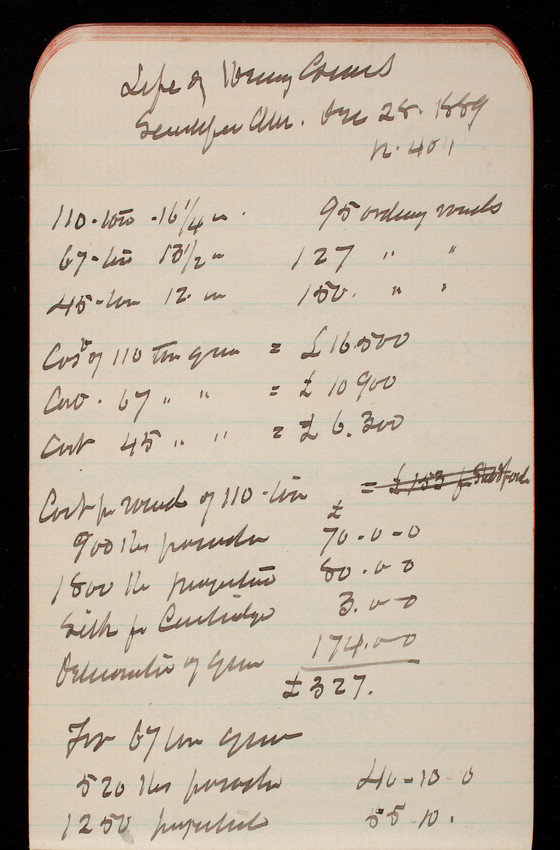 Life of Heavy Cannons
Scientific Am. Dec 28. 1889
p. 401
110-ton - 16 1/4 in. 95 ordinary rounds
67-ton 13 1/2 in 127 " "
45-ton 12 in 150. " "
Cost of 110 ton gun = £16500
Cost. 67 " " = £10900
Cost 45 " " = £6.300
Cost per round of 110-ton = £153 for
£
900 lbs powder 70-0-0
1800 lb projectile 80.0-0
Silk for Cartridge 3.0-0
Deterioration of gun 174.0-0
£327.
For 67 ton gun
520 lbs powder 40-10-0
1250 projectile 55-10.